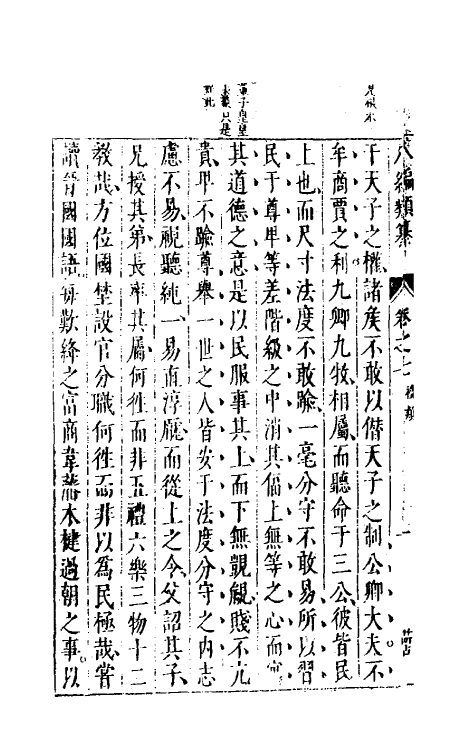 八編類纂
卷之七
禮類
于天子之權諸矦不敢以僣天子之制公卿大夫不
牟商賈之利九卿九牧相屬而聽命于三公彼皆民
上也而尺寸法度不敢踰一毫分守不敢易所以習
民于尊卑等差階級之中消其偪上無等之心而寓
其道德之意是以民服事其上而下無覬覦賤不亢
貴卑不踰尊舉一世之人皆安于法度分守之内志
慮不易視聽純一易直淳厖而從上之令父詔其子
兄授其弟長率其屬何徃而非五禮六樂三物十二
教哉方位國埜設官分職何徃而非以為民極哉嘗
讀晉國國語每歎絳之富商韋藩木楗過朝之事以